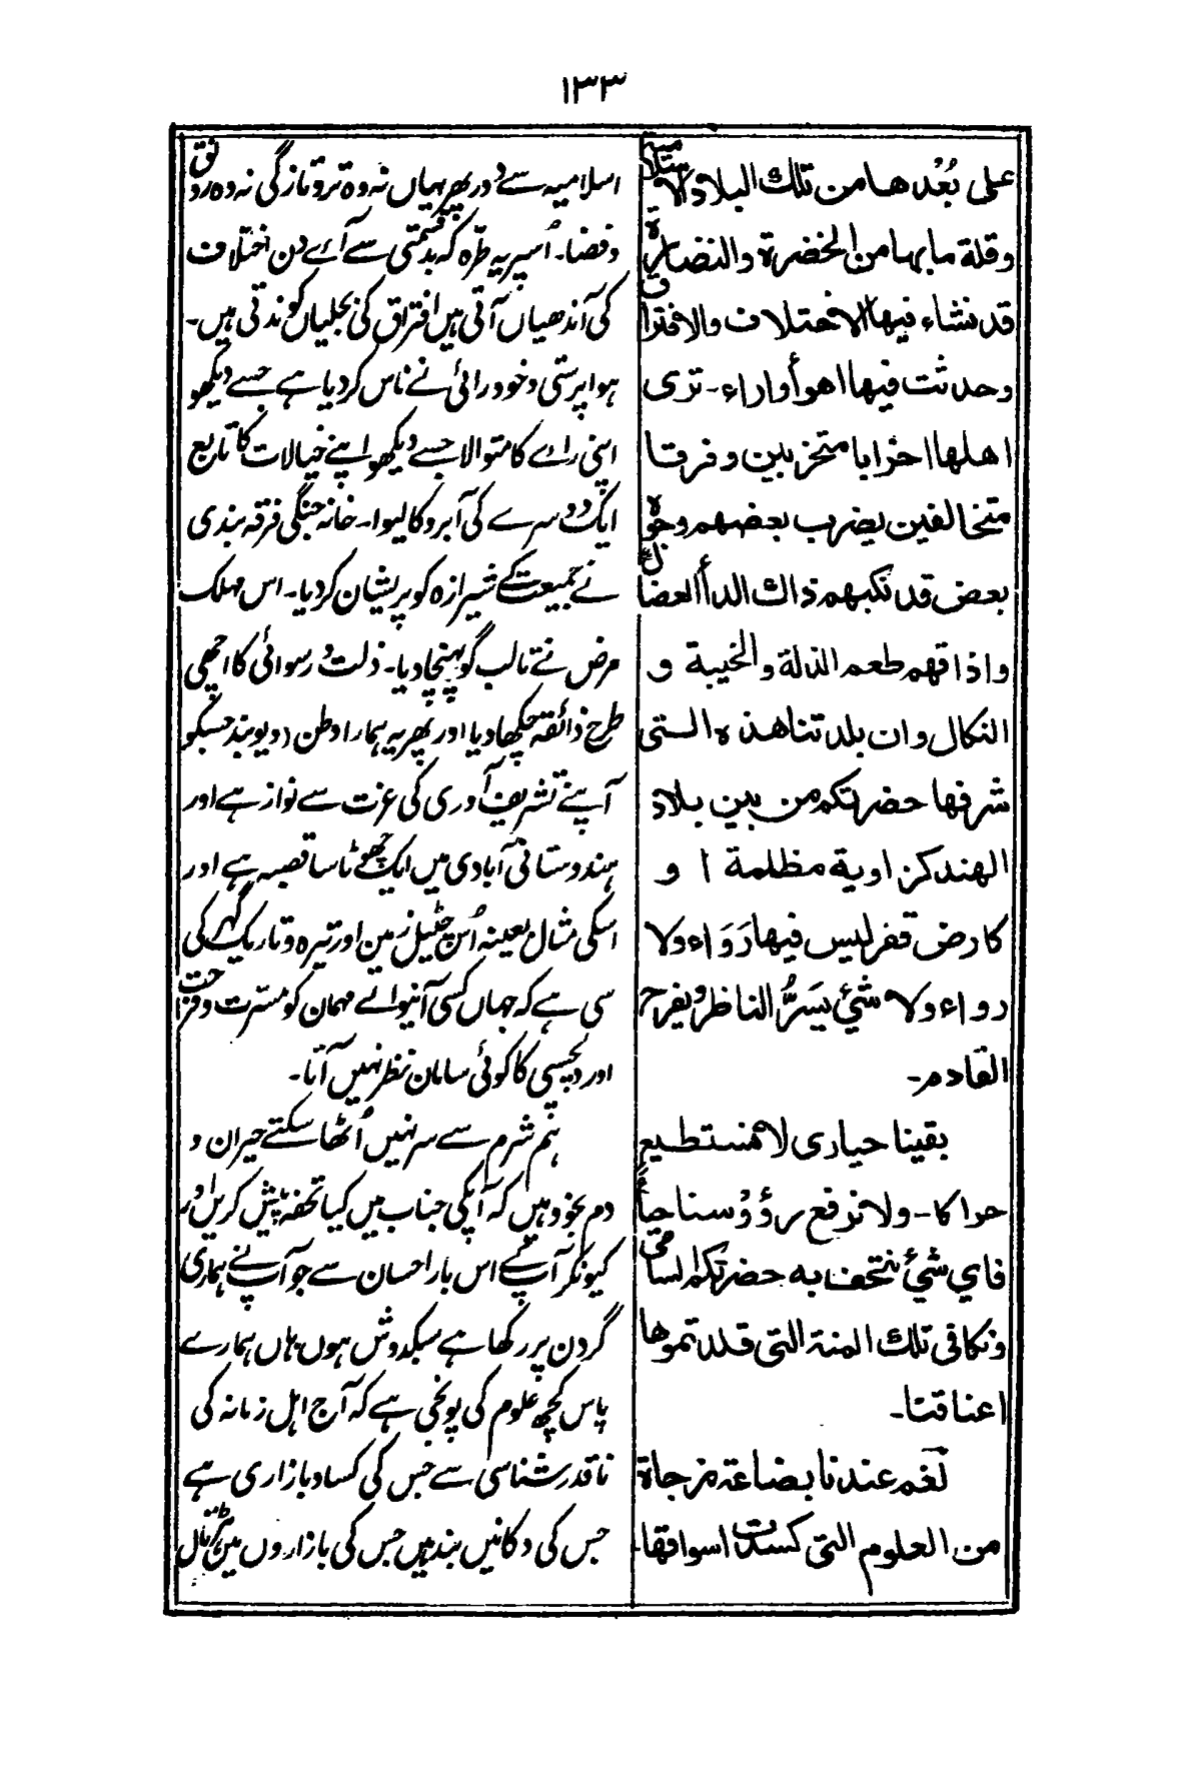 ١٣٣
علی بُعْدها من تلك البلاد الاسلامیة
وقلة ما بها من الخضرة والنضارة
قد نشاء فیها الاختلاف والافتراق
وحدثت فیها اهوأ واراء۔ تری
اهلها احزابا متحزبین وفرقا
متخالفین یضرب بعضهم وجوه
بعض قد نکبهم ذاك الدأ العضال
واذاقهم طعم الذلة والخیبة و
النکال وان بلدتنا هذه التی
شرفها حضرتکم من بین بلاد
الهند کزاویة مظلمة ا و
کارض قفر لیس فیها رَوَاء ولا
رواء ولا شئ یَسَرُّ الناظر ویفرح
القادم۔
بقینا حیاری لا نستطیع
حراکا۔ ولا نرفع رؤوُسنا حیاءً
فای شئ نتحف به حضرتکم السامی
ونکافی تلك المنة التی قلدتموها
اعناقنا۔
نَعَم عندنا بضاعة مزجاة
من العلوم التی کسدت اسواقها۔
اسلامیہ سے دور پھر یہاں نہ وہ تروتازگی نہ وہ رونق
وفضا۔ اُسپر یہ طرّہ کہ بدقسمتی سے آئے دن اختلاف
کی آندھیاں آتی ہیں افتراق کی بجلیاں کوندتی ہیں۔
ہوا پرستی وخودرائی نے ناس کردیا ہے جسے دیکھو
اپنی راے کا متوالا جسے دیکھو اپنے خیالات کا تابع
ایک دوسرے کی آبرو کا لیوا۔ خانہ جنگی فرقہ بندی
نے جمیعت کے شیرازہ کو پریشان کردیا۔ اس مہلک
مرض نے تا لب گو پہنچا دیا۔ ذلت و رسوائی کا اچھی
طرح ذائقہ چکھا دیا اور پھر یہ ہمارا وطن (دیوبند جسکو
آپنے تشریف آوری کی عزت سے نوازہے اور
ہندوستانی آبادی میں ایک چھوٹا سا قصبہ ہے اور
اسکی مثال بعینہ اُس چٹیل زمین اور تیرہ وتاریک گھر کی
سی ہے کہ جہاں کسی آنیوالے مہمان کو مسرت وفرحت
اور دلچسپی کا کوئی سامان نظر نہیں آتا۔
ہم شرم سے سر نہیں اُٹھا سکتے حیران و
دم بخود ہیں کہ آپکی جناب میں کیا تحفہ پیش کریں اور
کیونکر آپ کے اس بار احسان سے جو آپ نے ہماری
گردن پر رکھا ہے سبکدوش ہوں ہاں ہمارے
پاس کچھ علوم کی پونجی ہے کہ آج اہل زمانہ کی
ناقدرشناسی سے جس کی کساد بازاری ہے
جس کی دکانیں بند ہیں جس کی بازاروں میں ہڑتال